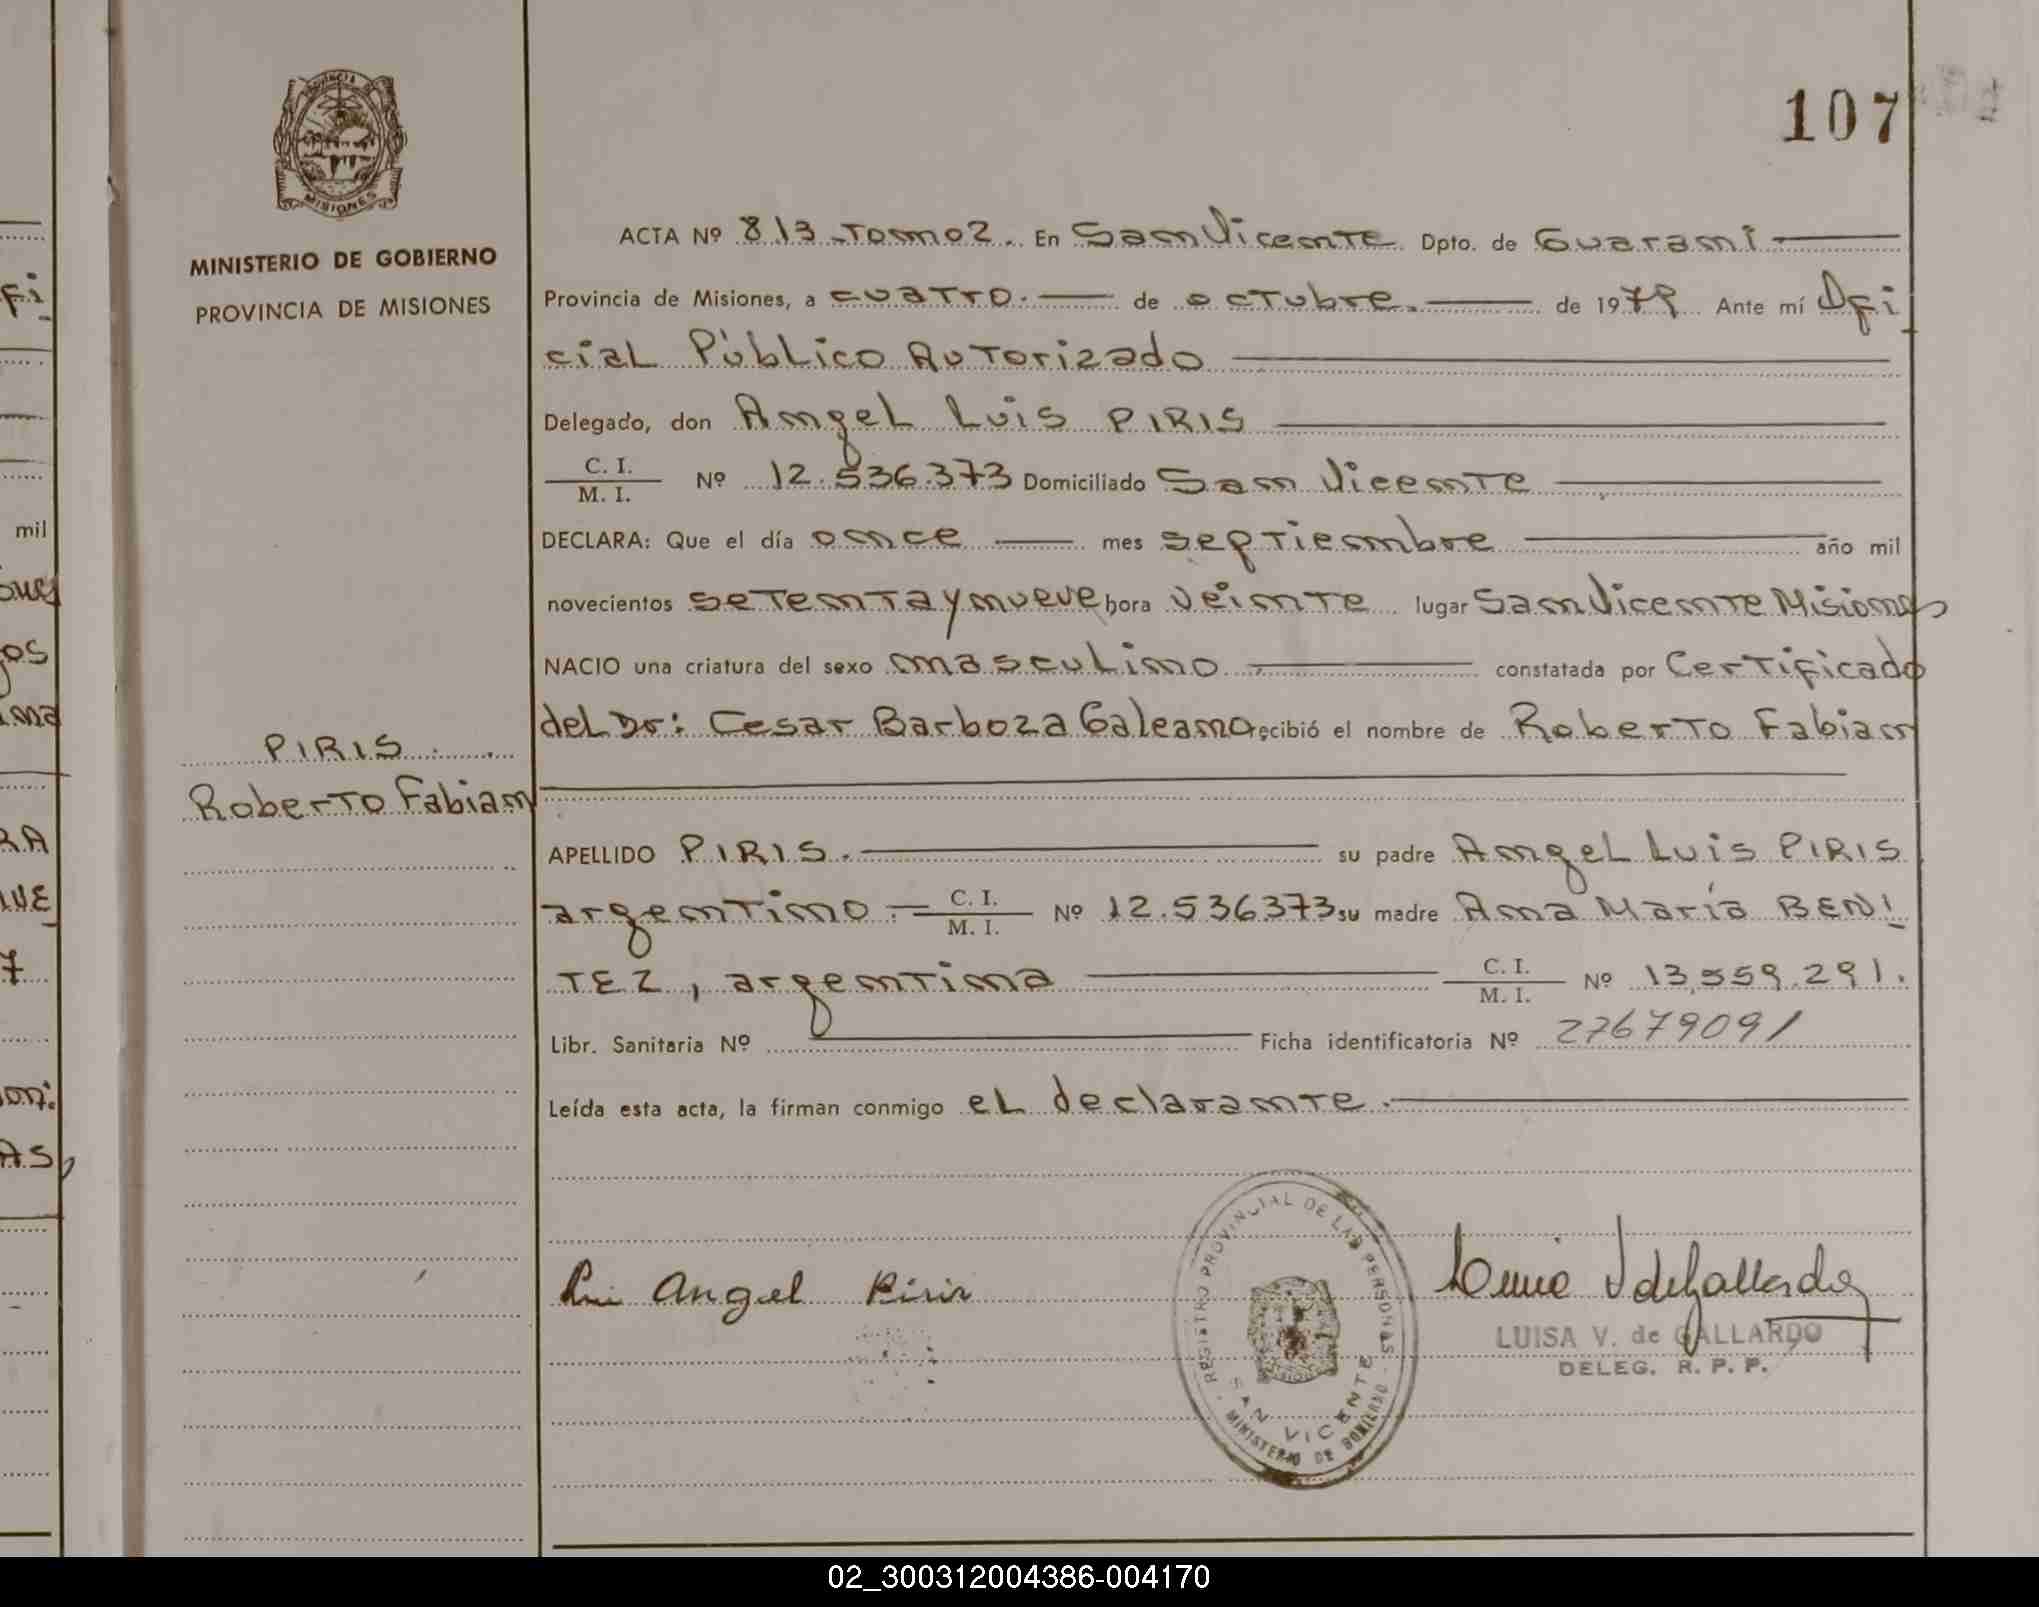 107
PROVINCIA DE
MISIONES
MINISTERIO DE GOBIERNO
PROVINCIA DE MISIONES
ACTA Nº 813 Tomo 2. En San Vicente Dpto. de Guaraní
Provincia de Misiones, a cuatro. de octubre. de 1979 Ante mí Ofi
cial Público Autorizado
Delegado, don Angel Luis PIRIS
C. I.
M. I. Nº 12.536.373 Domiciliado San Vicente
DECLARA: Que el día once mes septiembre año mil
novecientos setenta y nueve hora veinte lugar San Vicente Misiones
NACIO una criatura del sexo masculino constatada por Certificado
del Dr: Cesar Barboza Galeano recibió el nombre de Roberto Fabian
PIRIS
Roberto Fabian
APELLIDO PIRIS. su padre Angel Luis PIRIS
argentino.- C. I.
M. I. Nº 12.536373 su madre Ana María BENI
TEZ, argentina C. I.
M. I. Nº 13.559.291.
Libr. Sanitaria Nº Ficha identificatoria Nº 27679091
Leída esta acta, la firman conmigo el declarante.
Angel Piris
REGISTRO PROVINCIAL DE LAS PERSONAS
SAN VICENTE
MINISTERIO DE GOBIERNO
V de Gallardo
LUISA V. de GALLARDO
DELEG. R. P. P.
mil
02_300312004386-004170